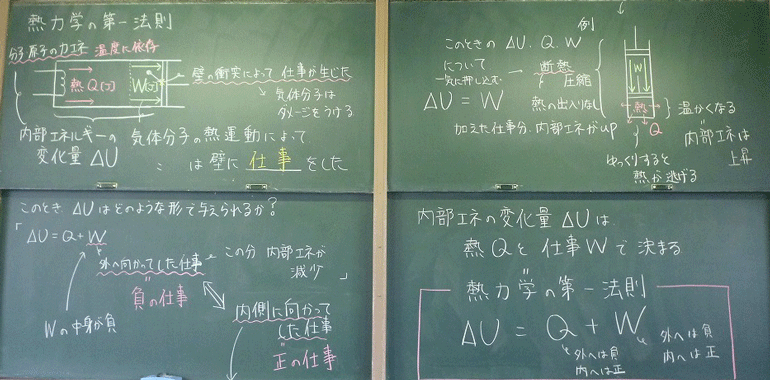 熱力学の第一法則
分子原子の力エネ 温度に依存
熱Q(J)
W(J)
壁の衝突によって 仕事が生じた
気体分子は
ダメージをうける
内部エネルギーの
変化量 ΔU
気体分子の熱運動によって
は壁に 仕事 をした
このとき ΔUはどのような形で与えられるか?
「ΔU=Q+W
外へ向かってした仕事
負の仕事
この分 内部エネが
減少 」
Wの中身が負
内側に向かって
した仕事
正の仕事
例
このときの ΔU、Q、W
について
一気に押し込む
断熱
圧縮
ΔU = W
熱の出入りなし
加えた仕事分、内部エネがup
W
熱
Q
温かくなる
内部エネは
上昇
ゆっくりすると
熱が逃げる
内部エネの変化量 ΔUは、
熱Qと仕事Wで決まる
熱力学の第一法則
ΔU = Q + W
外へは負
内へは正
外へは負
内へは正